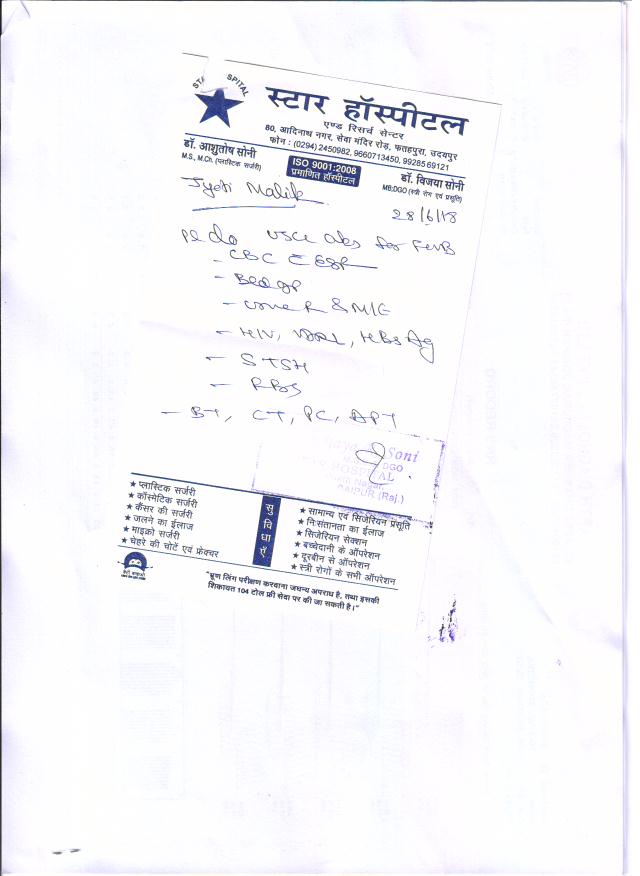 STA SPITAL
स्टार हॉस्पीटल
एण्ड रिसर्च सेन्टर
80, आदिनाथ नगर, सेवा मंदिर रोड़, फतहपुरा, उदयपुर
फोन : (0294) 2450982, 9660713450, 99285 69121
डॉ. आशुतोष सोनी
M.S., M.Ch. (प्लास्टिक सर्जरी)
ISO 9001:2008
प्रमाणित हॉस्पीटल
डॉ. विजया सोनी
MB;DGO (स्त्री रोग एवं प्रसूति)
Jyoti Malik
28/6/18
for
- CBC ESR
- Bld gp
- R & M/E
- HIV, VDRL, HBsAg
- STSH
- RBS
- BT, CT, PC, APT
Soni
DGO
HOSPITAL
Nagar,
UDAIPUR (Raj.)
★ प्लास्टिक सर्जरी
★ कॉस्मेटिक सर्जरी
★ कैंसर की सर्जरी
★ जलने का ईलाज
★ माइक्रो सर्जरी
★ चेहरे की चोटें एवं फ्रेक्चर
सुविधाएँ
★ सामान्य एवं सिजेरियन प्रसूति
★ नि:संतानता का ईलाज
★ सिजेरियन सेक्शन
★ बच्चेदानी के ऑपरेशन
★ दूरबीन से ऑपरेशन
★ स्त्री रोगों के सभी ऑपरेशन
"भ्रूण लिंग परीक्षण करवाना जघन्य अपराध है, तथा इसकी
शिकायत 104 टोल फ्री सेवा पर की जा सकती है।"